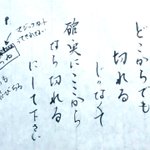 どこからでも
切れる
じゃなくて
確実にここから
なら切れる
にして下さい
マジックカット